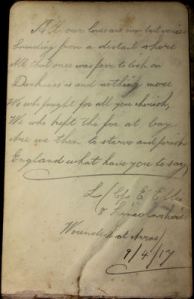 All our loves are now but voices
Sounding from a distant shore
All that once was fair to look on
Darkness is and nothing more
We who fought for all you cherish
We who kept the foe at bay
Are we then to starve and perish
England what have you to say
L/Cpl E Ellis
Wounded at Arras
9/4/17